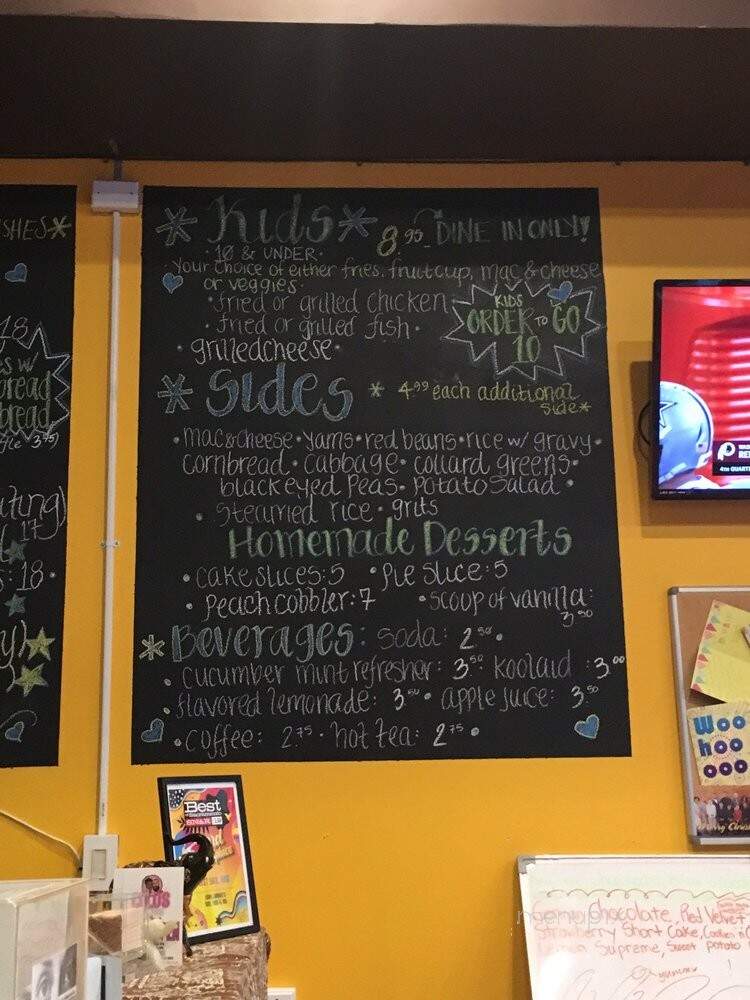 SHES*
Kids
8.95 DINE IN ONLY!
10 & UNDER
your choice of either fries, fruit cup, mac & cheese
or veggies.
• fried or grilled chicken
• fried or grilled fish •
• grilledcheese •
KIDS
ORDER TO GO
10
Sides
* 4.99 each additional
side*
• mac&cheese • yams • red beans • rice w/ gravy •
cornbread • cabbage • collard greens •
blackeyed peas • potato salad •
• steamed rice • grits
Homemade Desserts
• cake slices: 5 • pie slice: 5
• peach cobbler: 7 • scoop of vanilla:
3.50
* Beverages: soda: 2.50 •
• cucumber mint refresher: 3.50 koolaid : 3.00
• flavored lemonade: 3.50 • apple juice: 3.50
• coffee: 2.75 • hot tea: 2.75 •
18
es w/
bread
bread
3.75)
ating)
17
: 18 •
y)
4TH QUART
Woo
hoo
ooo
Best
SN&R
Chocolate, Red Velvet
Strawberry Short Cake, Cookies n
Supreme, Sweet potato